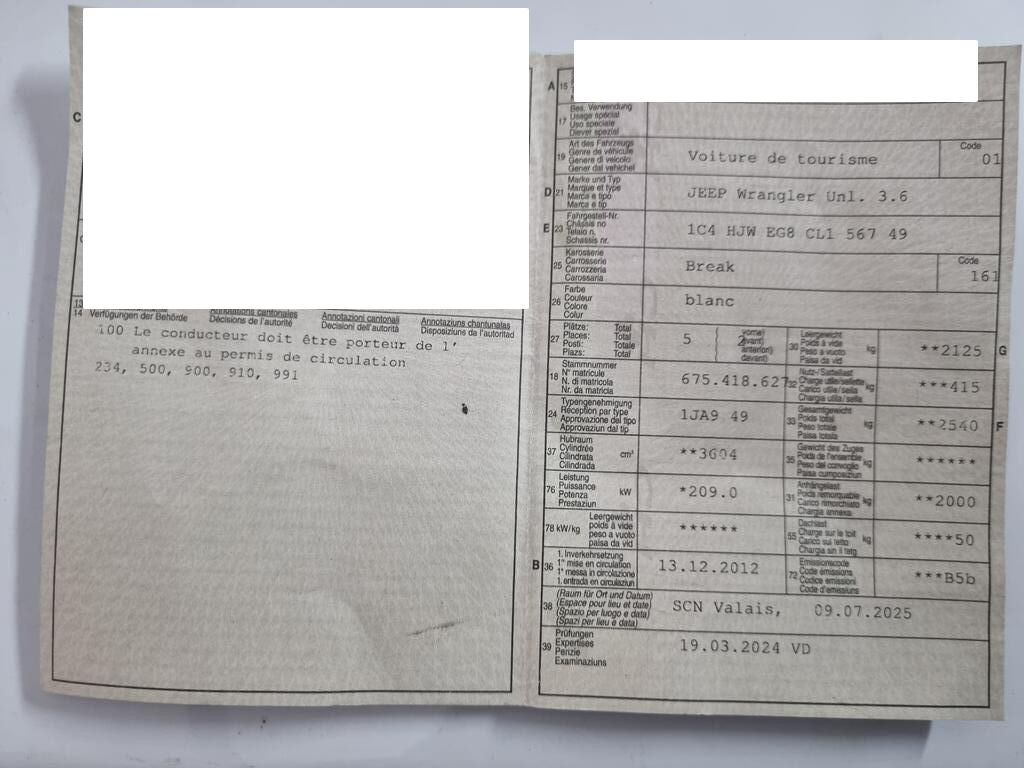 C
13
14 Verfügungen der Behörde
Annotations cantonales
Décisions de l'autorité
Annotazioni cantonali
Decisioni dell'autorità
Annotaziuns chantunalas
Disposiziuns da l'autoritad
100 Le conducteur doit être porteur de l'
annexe au permis de circulation
234, 500, 900, 910, 991
A 15
17 Bes. Verwendung
Usage spécial
Uso speciale
Diever spezial
19 Art des Fahrzeugs
Genre de véhicule
Genere di veicolo
Gener dal vehichel
Voiture de tourisme
Code
01
D 21 Marke und Typ
Marque et type
Marca e tipo
Marca e tip
JEEP Wrangler Unl. 3.6
E 23 Fahrgestell-Nr.
Châssis no
Telaio n.
Schassis nr.
1C4 HJW EG8 CL1 567 49
25 Karosserie
Carrosserie
Carrozzeria
Carossaria
Break
Code
161
26 Farbe
Couleur
Colore
Colur
blanc
27 Plätze: Total
Places: Total
Posti: Totale
Plazs: Total
5
2
vorne)
avant)
anteriori)
davant)
30 Leergewicht
Poids à vide
Peso a vuoto
Paisa da vid
kg
**2125
G
18 Stammnummer
N° matricule
N. di matricola
Nr. da matricla
675.418.627
32 Nutz-/Sattellast
Charge utile/sellette
Carico utile/sella
Chargia utila/sella
kg
***415
24 Typengenehmigung
Réception par type
Approvazione del tipo
Approvaziun dal tip
1JA9 49
33 Gesamtgewicht
Poids total
Peso totale
Paisa totala
kg
**2540
F
37 Hubraum
Cylindrée
Cilindrata
Cilindrada
cm³
**3604
35 Gewicht des Zuges
Poids de l'ensemble
Peso del convoglio
Paisa cumposiziun
kg
******
76 Leistung
Puissance
Potenza
Prestaziun
kW
*209.0
31 Anhängelast
Poids remorquable
Carico rimorchiato
Chargia annexa
kg
**2000
78 kW/kg
Leergewicht
poids à vide
peso a vuoto
paisa da vid
******
55 Dachlast
Charge sur le toit
Carico sul tetto
Chargia sin il tetg
kg
****50
B 36 1. Inverkehrsetzung
1re mise en circulation
1a messa in circolazione
1. entrada en circulaziun
13.12.2012
72 Emissionscode
Code émissions
Codice emissioni
Code d'emissiuns
***B5b
38 (Raum für Ort und Datum)
(Espace pour lieu et date)
(Spazio per luogo e data)
(Spazi per lieu e data)
SCN Valais, 09.07.2025
39 Prüfungen
Expertises
Perizie
Examinaziuns
19.03.2024 VD